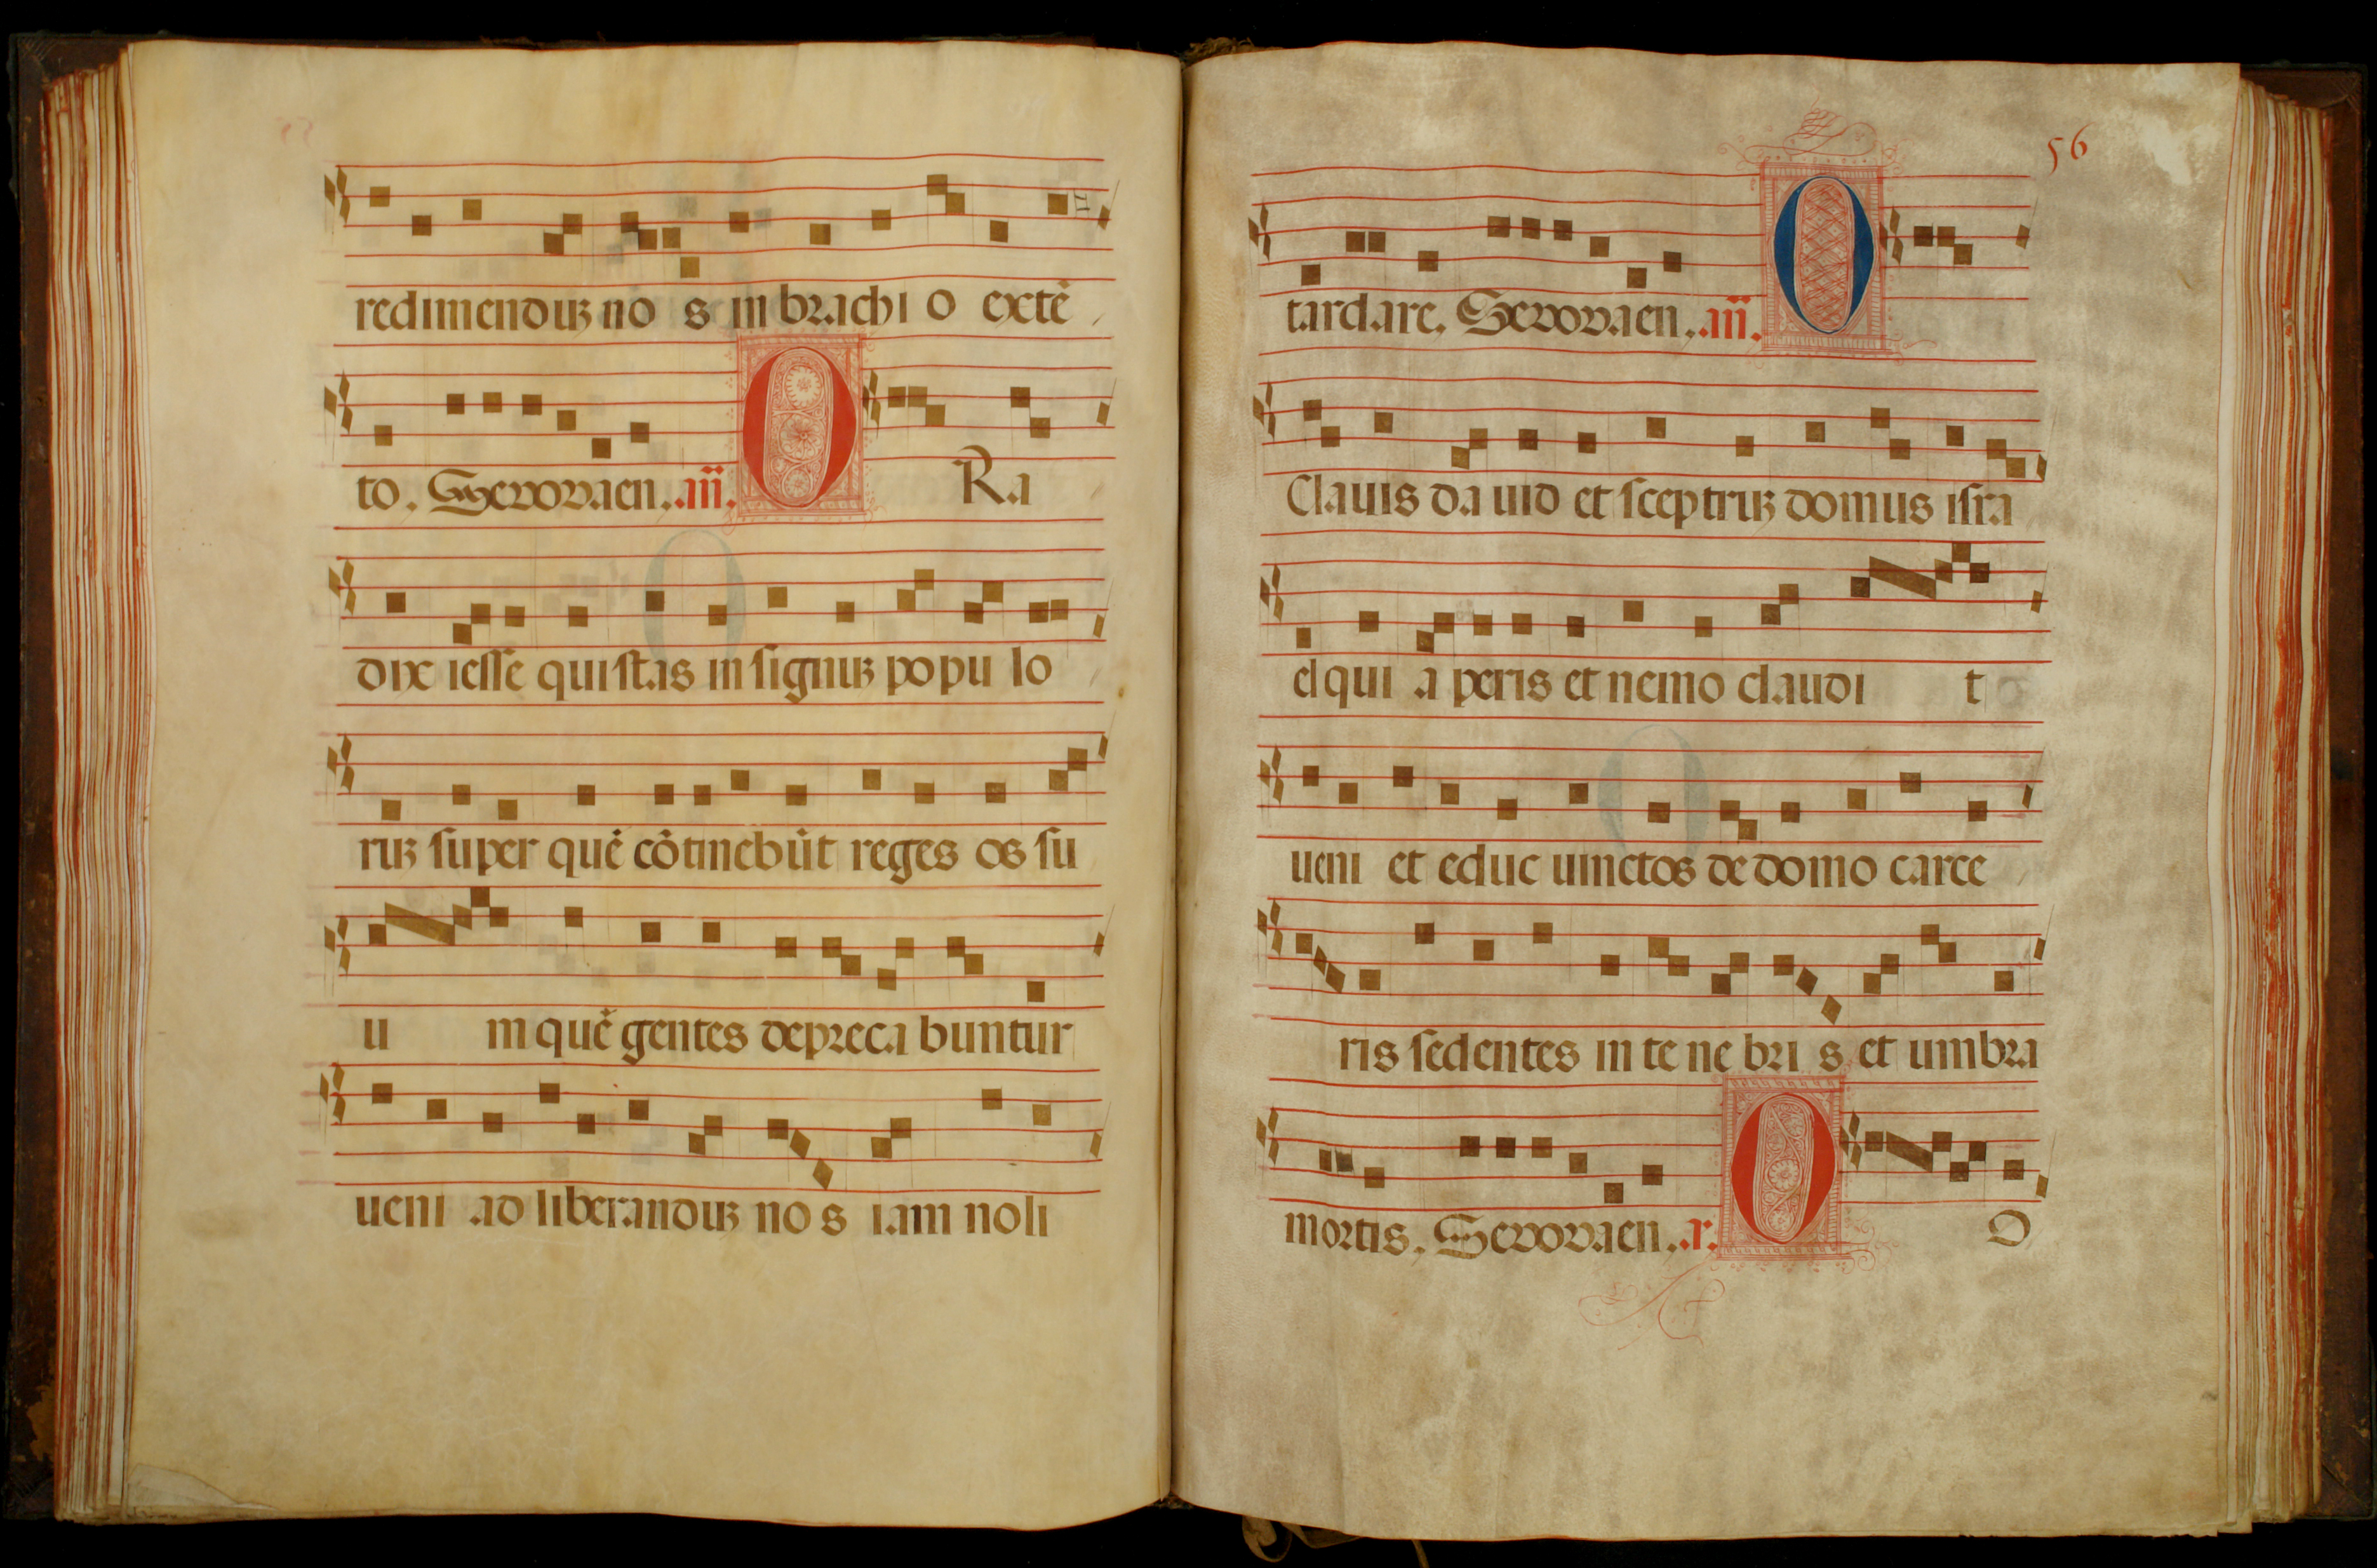 redimenduꝫ no s in brachi o extē
to. Seuouaen. .añ. O Ra
dix iesse qui stas in signuꝫ popu lo
ruꝫ super quē cōtinebūt reges os su
u m quē gentes depreca buntur
ueni ad liberanduꝫ no s iam noli
56
tardare. Seuouaen. .añ. O
Clauis da uid et sceptruꝫ domus isra
el qui a peris et nemo claudi t
ueni et educ uinctos de domo carce
ris sedentes in te ne bri s et umbra
mortis. Seuouaen. .r. O O